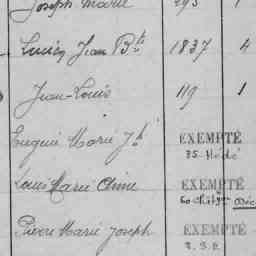 Joseph Marie 295 1
Lucien Jean Bte 1837 4
Jean-Louis 119 1
Eugène Marie Jh EXEMPTÉ
35. Hédé
Louis Marie Aimé EXEMPTÉ
Pierre Marie Joseph EXEMPTÉ